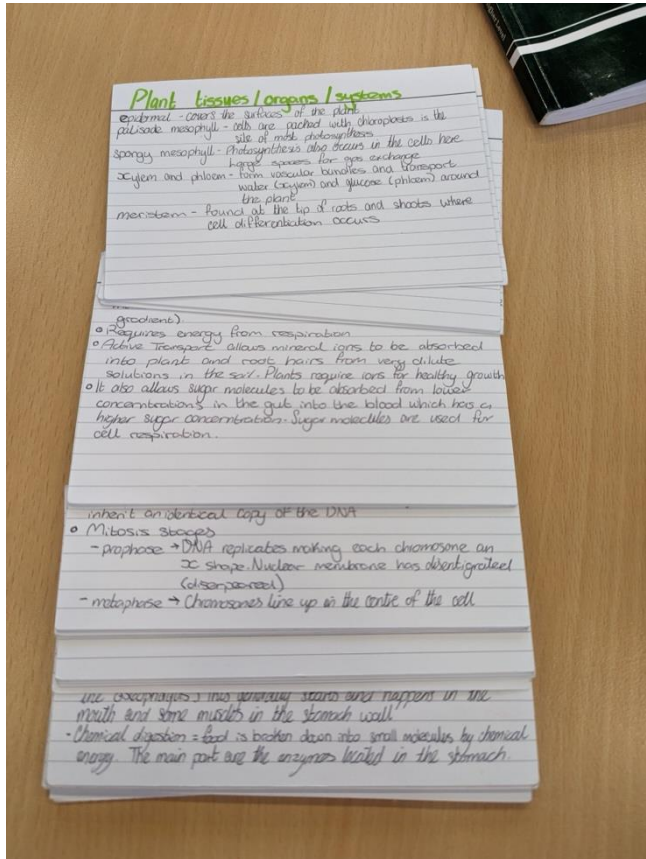 Plant tissues / organs / systems
epidermal - covers the surfaces of the plant
palisade mesophyll - cells are packed with chloroplasts is the
site of most photosynthesis
spongy mesophyll - Photosynthesis also occurs in the cells here
large spaces for gas exchange
xylem and phloem - form vascular bundles and transport
water (xylem) and glucose (phloem) around
the plant
meristem - found at the tip of roots and shoots where
cell differentiation occurs
gradient).
Requires energy from respiration
Active Transport allows mineral ions to be absorbed
into plant and root hairs from very dilute
solutions in the soil. Plants require ions for healthy growth
It also allows sugar molecules to be absorbed from lower
concerntrations in the gut into the blood which has a
higher sugar concerntration. Sugar molecules are used for
cell respiration.
inherit an identical copy of the DNA
Mitosis stages
- prophase → DNA replicates making each chromosone an
x shape. Nuclear membrane has disentigrated
(disappeared)
- metaphase → Chromosones line up in the centre of the cell
the oesophagus) This generally starts and happens in the
mouth and some muscles in the stomach wall
- Chemical digestion = food is broken down into small molecules by chemical
energy. The main part are the enzymes located in the stomach.